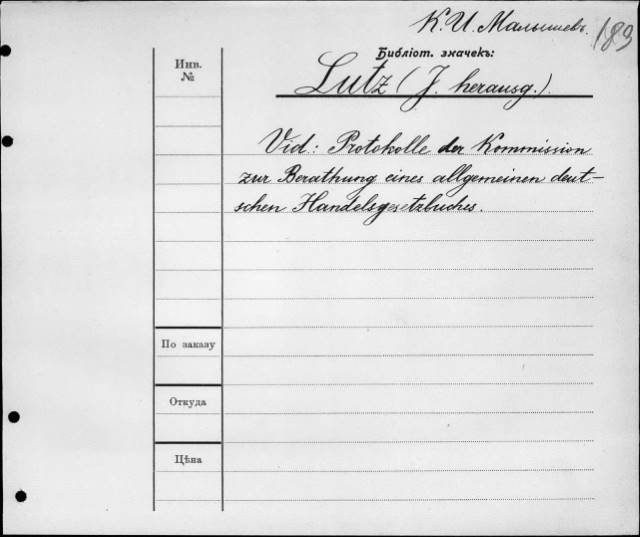 К. И. Малышевъ.
183
Библіот. значекъ:
Инв.
№
Lutz (J. herausg.).
Vid.: Protokolle der Kommission
zur Berathung eines allgemeinen deut-
schen Handelsgesetzbuches.
По заказу
Откуда
Цѣна